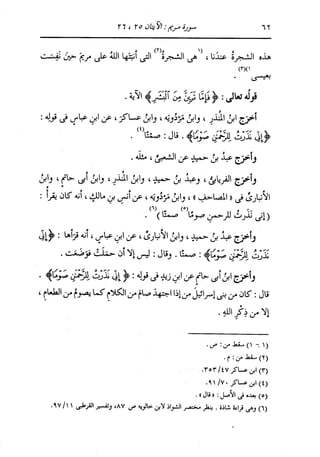 ٦٢
سورة مريم : الآيتان ٢٥ ، ٢٦
هذه الشجرةُ عندنا ، (١)هى الشجرةُ(٢) التى أنبتها اللهُ على مريمَ حينَ نُفِست
بعيسى(١)(٣) .
قولُه تعالى : ﴿ فَإِمَّا تَرَيِنَّ مِنَ ٱلْبَشَرِ ﴾ الآية .
أخرج ابنُ المنذرِ ، وابنُ مَرْدُويَه ، وابنُ عساكرَ ، عن ابنِ عباسٍ فى قولِه :
﴿ إِنِّي نَذَرْتُ لِلرَّحْمَٰنِ صَوْمًا ﴾ . قال : صمتًا(٤) .
وأخرج عبدُ بنُ حميدٍ عن الشعبىِّ ، مثلَه .
وأخرج الفريابىُّ ، وعبدُ بنُ حميدٍ ، وابنُ المنذرِ ، وابنُ أبى حاتمٍ ، وابنُ
الأنبارىِّ فى « المصاحفِ » ، وابنُ مَرْدُويَه ، عن أنسِ بنِ مالكٍ ، أنه كان يقرأُ :
(إنى نذرتُ للرحمنِ صومًا(٥) صمتًا)(٦) .
وأخرج عبدُ بنُ حميدٍ ، وابنُ الأنبارىِّ ، عن ابنِ عباسٍ ، أنه قرَأها : ﴿ إِنِّي
نَذَرْتُ لِلرَّحْمَٰنِ صَوْمًا ﴾ : صمتًا . وقال : ليس إلا أن حمَلت فوضَعت .
وأخرج ابنُ أبى حاتمٍ عن ابنِ زيدٍ فى قولِه : ﴿ إِنِّي نَذَرْتُ لِلرَّحْمَٰنِ صَوْمًا ﴾ .
قال : كان من بنى إسرائيلَ من إذا اجتهد صام من الكلامِ كما يصومُ من الطعامِ ،
إلا من ذِكْرِ اللهِ .
(١ - ١) سقط من : ص .
(٢) سقط من : م .
(٣) ابن عساكر ٤٧/ ٣٥٣.
(٤) ابن عساكر ٧٠/ ٩١.
(٥) بعده فى الأصل : « قال » .
(٦) وهى قراءة شاذة . ينظر مختصر الشواذ لابن خالويه ص ٨٧، وتفسير القرطبى ١١/ ٩٧.